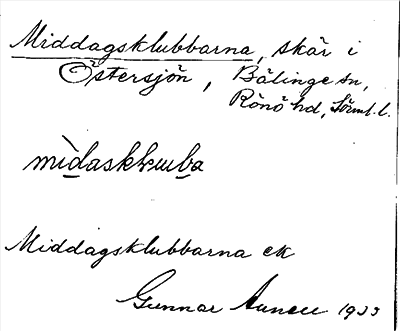 Middagsklubbarna, skär i
Östersjön, Bälinge sn,
Rönö hd, Sörml. l.
Middagsklubbarna ek
Gunnar 1933